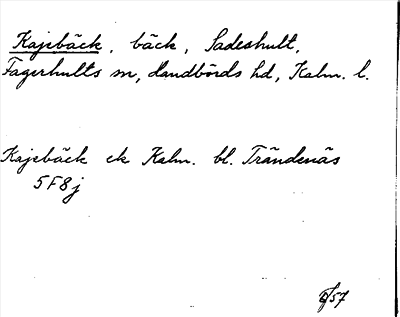 Kajebäck, bäck, Sadeshult,
Fagerhults sn, Handbörds hd, Kalm. l.
Kajebäck ek Kalm. bl. Trändenäs
5F8j
57